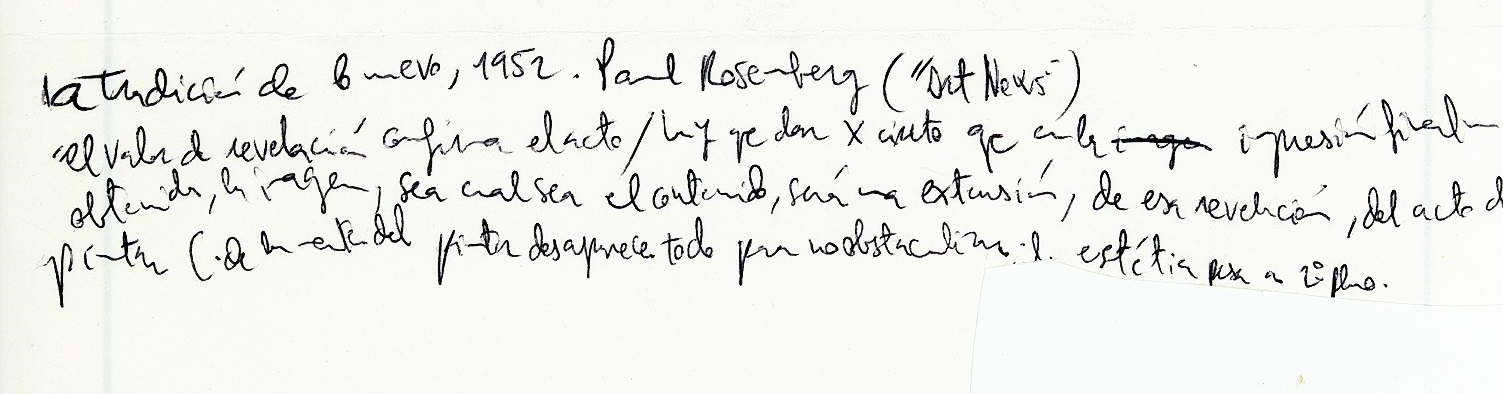 la Tradición de lo nuevo, 1952. Paul Rosenberg ("Art News")
"el valor de revelación confirma el acto / hay que dar x cierto que en la imagen impresión finalm
obtenida, la imagen, sea cual sea el contenido, será una extensión, de esa revelación, del acto d
pintar (. de la mente del pintor desaparece todo para no obstaculizar. estética pasa a 2º plano.